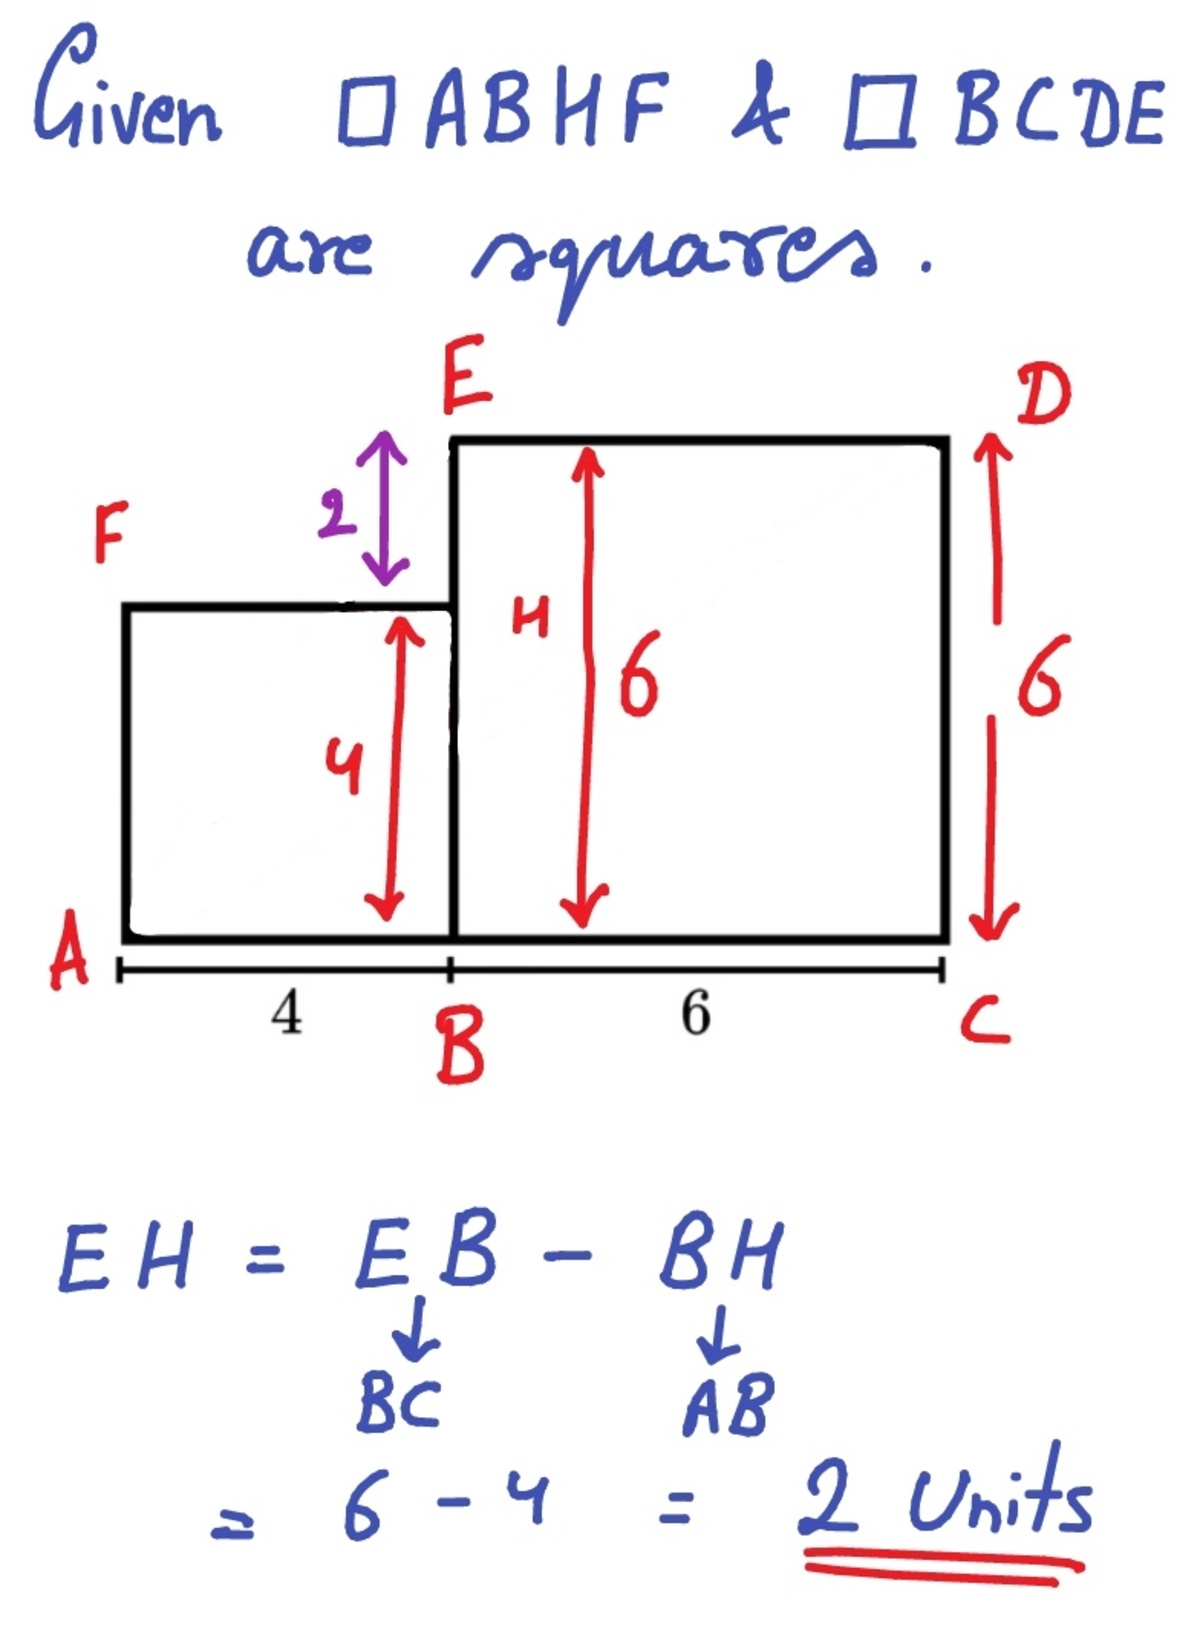 Given □ABHF & □BCDE
are squares.
E
D
F
2
H
6
6
4
A
4
B
6
C
EH = EB - BH
↓ ↓
BC AB
= 6 - 4 = 2 Units